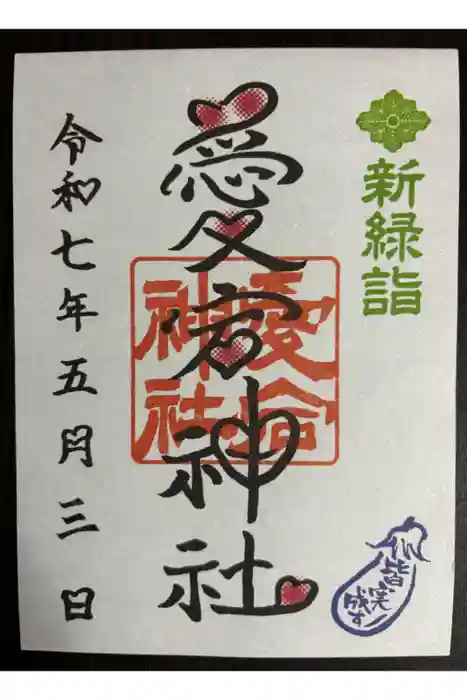 新緑詣
皆実
成す
愛宕神社
愛宕
神社
令和七年五月三日